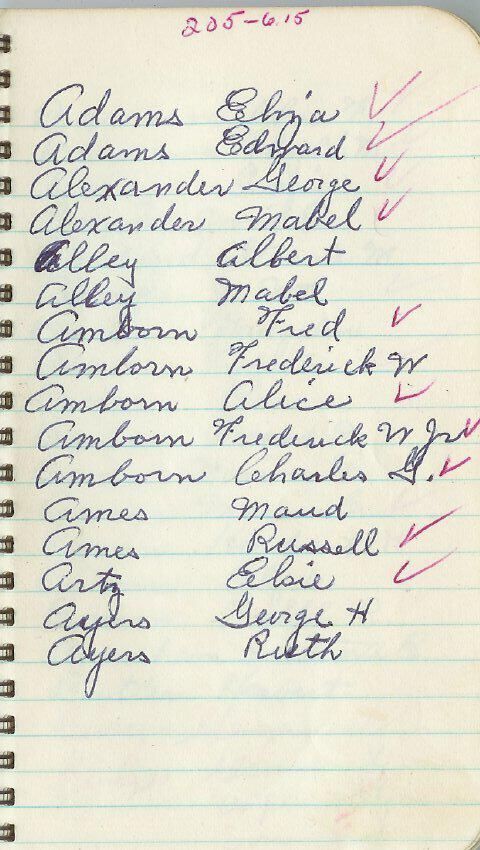 205-615
Adams Elija ✓
Adams Edward ✓
Alexander George ✓
Alexander Mabel ✓
Alley Albert
Alley Mabel
Amborn Fred ✓
Amborn Frederick W
Amborn Alice ✓
Amborn Frederick W Jr ✓
Amborn Charles G. ✓
Ames Maud
Ames Russell ✓
Artz Elsie ✓
Ayers George H
Ayers Ruth